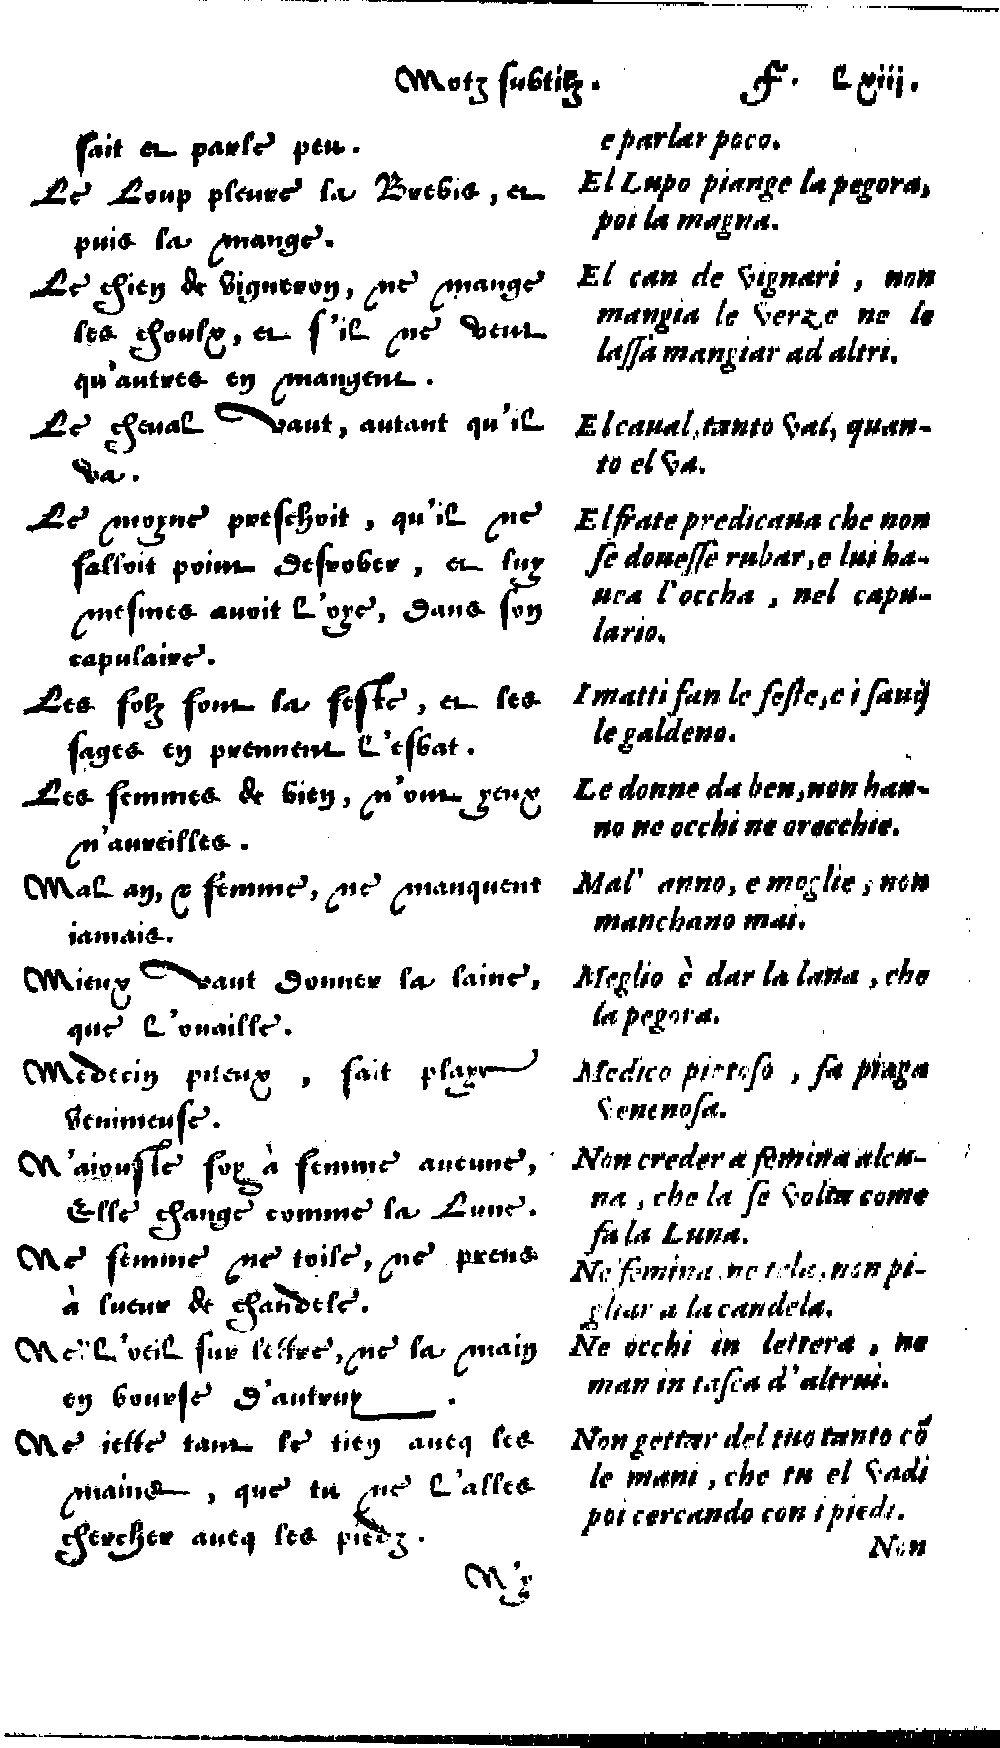 Motz subtilz. F. Lxiii.
fait et parle peu.
Le Loup pleure la Brebis, et
puis la mange.
Le chien de vigneron, ne mange
les choulx, et s'il ne veut
qu'autres en mangent.
Le cheval vaut, autant qu'il
va.
Le moyne preschoit, qu'il ne
falloit point desrober, et luy
mesmes avoit l'oye, dans son
capulaire.
Les folz font la feste, et les
sages en prennent l'esbat.
Les femmes de bien, n'ont yeux
n'aureilles.
Mal an, & femme, ne manquent
iamais.
Mieux vaut donner la laine,
que l'ouaille.
Medecin piteux, fait playe
venimeuse.
N'aiouste foy à femme aucune,
Elle change comme la Lune.
Ne femme ne toile, ne prens
à lueur de chandele.
Ne l'oeil sur lettre, ne la main
en bourse d'autruy.
Ne iette tant le tien aueq les
mains, que tu ne l'alles
chercher aueq les piedz.
N'y
e parlar poco.
El Lupo piange la pegora,
poi la magna.
El can de vignari, non
mangia le verze ne le
lassa mangiar ad altri.
El caual, tanto val, quan-
to el va.
El frate predicaua che non
se douesse rubar, e lui ha-
uea l'occha, nel capu-
lario.
I matti fan le feste, e i sauij
le galdeno.
Le donne da ben, non han-
no ne occhi ne orecchie.
Mal' anno, e moglie, non
manchano mai.
Meglio è dar la lana, che
la pegora.
Medico pietoso, fa piaga
venenosa.
Non creder a femina alcu-
na, che la se volta come
fa la Luna.
Ne femina, ne tela, non pi-
gliar a la candela.
Ne occhi in lettera, ne
man in tasca d'altrui.
Non gettar del tuo tanto cõ
le mani, che tu el vadi
poi cercando con i piedi.
Non